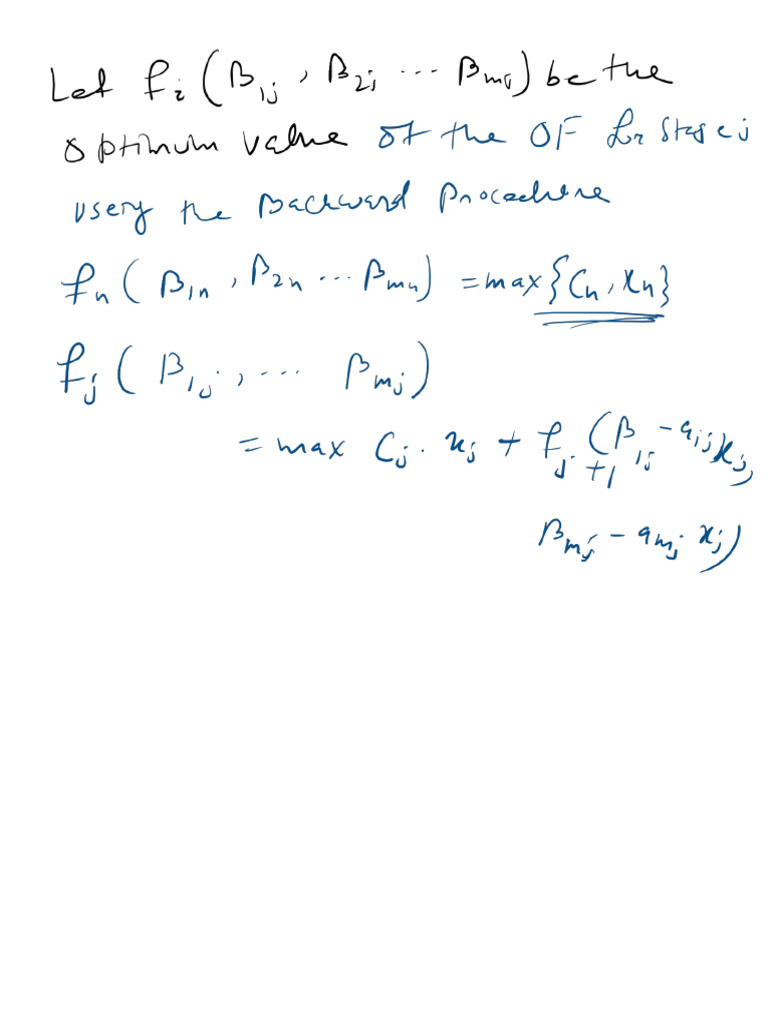 Let f_i (β_1j, β_2j ... β_mj) be the
optimum value of the OF for stage j
using the Backward Procedure
f_n (β_1n, β_2n ... β_mn) = max{C_n, x_n}
f_j (β_1j, ... β_mj)
= max C_j . x_j + f_j+1 (β_1j - a_ij)x_j,
β_mj - a_mj x_j)